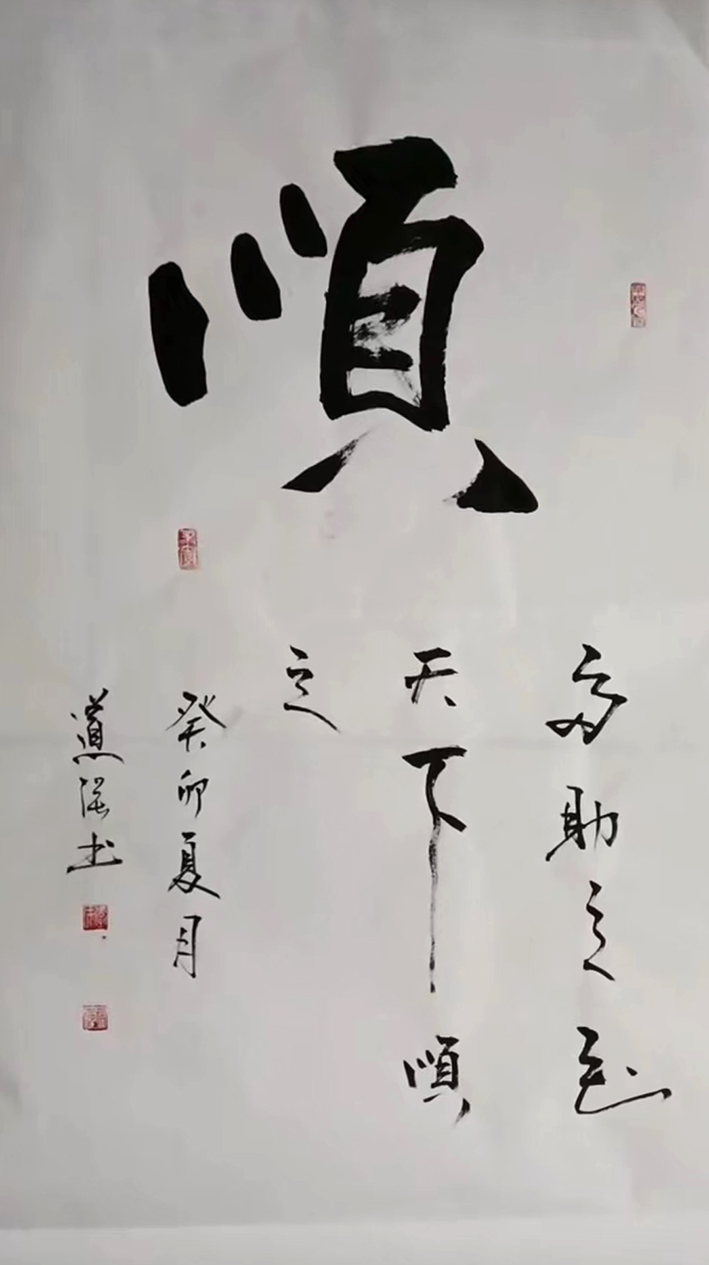 順
多助之至
天下順
之
癸卯夏月
道强书